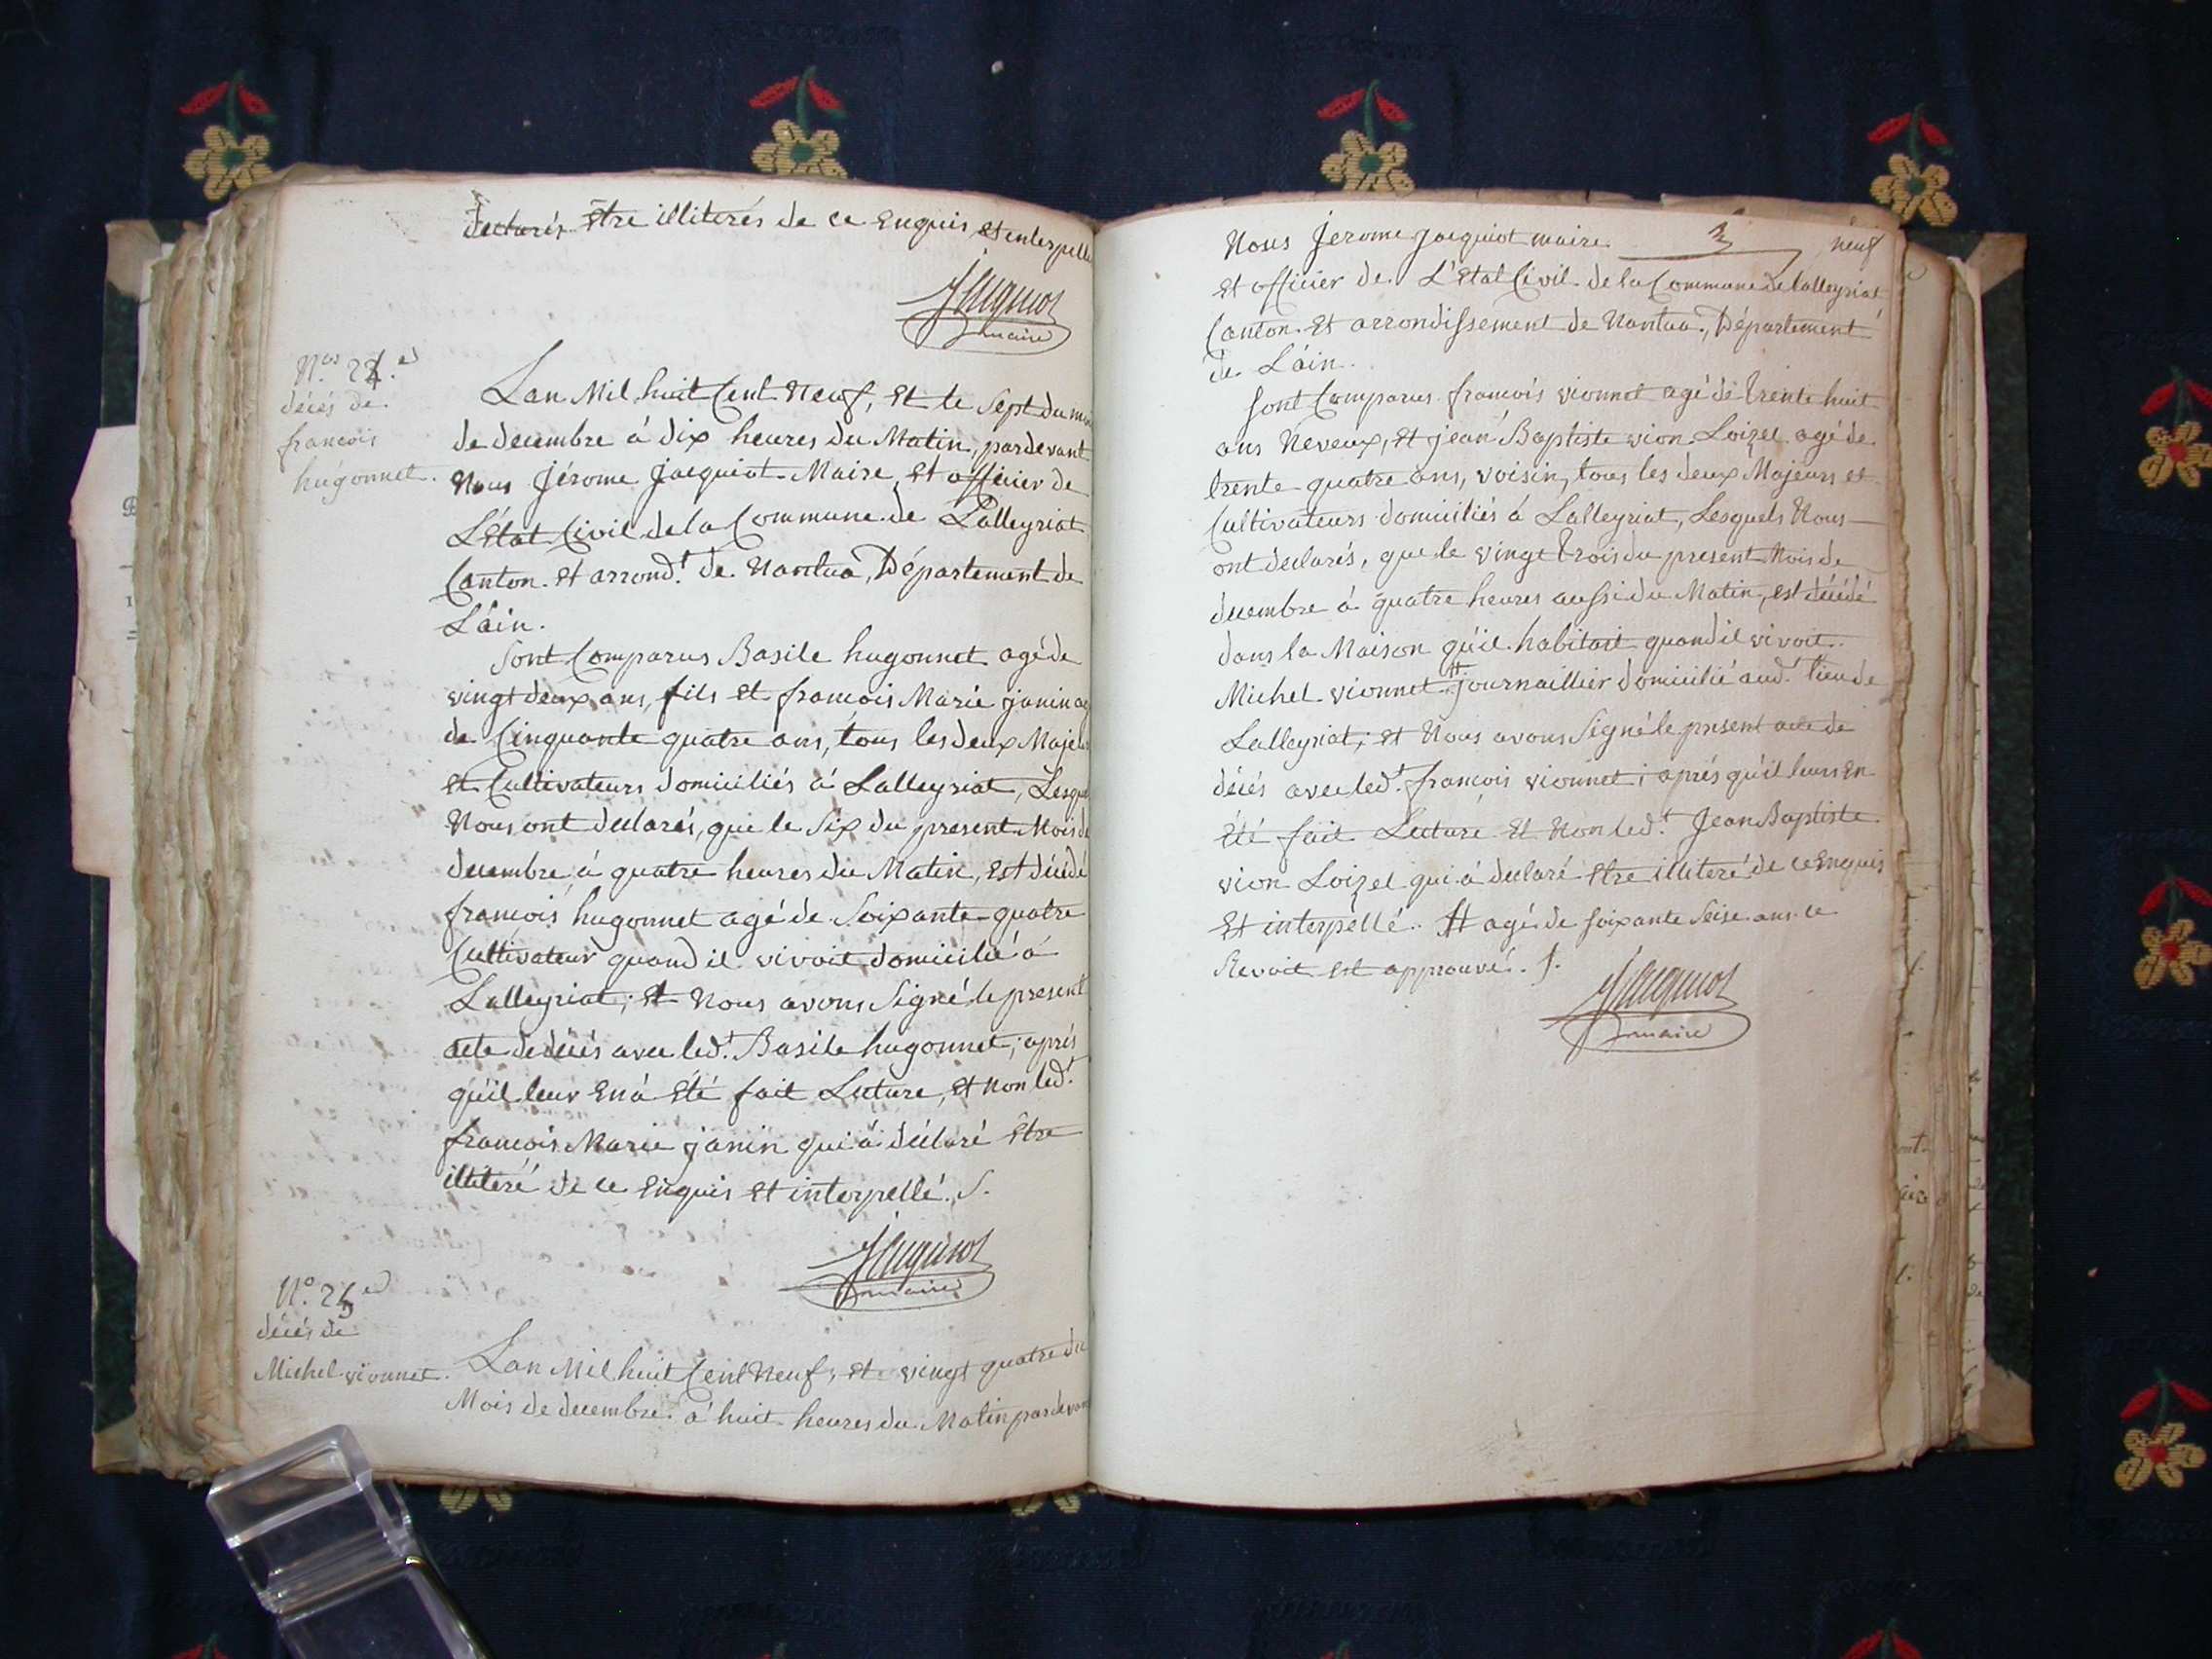 declarés Être illiterés de ce Enquis et interpellé
Jacquiot
maire
N.os 24.e
décés de
francois
hugonnet.
Lan Mil huit Cent Neuf, Et le Sept du mois
de decembre à dix heures du Matin, pardevant
Nous Jérome Jacquiot Maire, Et officier de
L'Etat Civil de la Commune de Lalleyriat
Canton Et arrond.t de Nantua, Département de
Láin.
Sont Comparus Basile hugonnet agé de
vingt deux ans, fils Et francois Marie janin agé
de Cinquante quatre ans, tous les deux Majeurs
et Cultivateurs domiciliés à Lalleyriat, Lesquels
Nous ont declarés, que le Six du present Mois de
decembre à quatre heures du Matin, Est décédé
francois hugonnet agé de Soixante quatre
Cultivateur quand il vivoit domicilié à
Lalleyriat; Et Nous avons Signé le present
acte de décés avec led.t Basile hugonnet; aprés
qu'il leur En à Eté fait Lecture, Et non led.t
francois Marie janin qui à déclaré Etre
illiteré de ce Enquis Et interpellé. S.
Jacquiot
maire
N.o 25.e
décés de
Michel vionnet.
Lan Mil huit Cent Neuf, Et vingt quatre du
Mois de decembre à huit heures du Matin pardevant
neuf
Nous Jerome Jacquiot maire
Et officier de L'Etat Civil de la Commune de Lalleyriat
Canton Et arrondissement de Nantua, Département
de Láin.
Sont Comparus francois vionnet agé de trente huit
ans Neveux, Et jean Baptiste vion Loizel agé de
trente quatre ans, voisin, tous les deux Majeurs et
Cultivateurs domiciliés à Lalleyriat, Lesquels Nous
ont declarés, que le vingt trois du present Mois de
decembre à quatre heures aussi du Matin, est décédé
dans la Maison qu'il habitait quand il vivoit
Michel vionnet # journaillier domicilié aud.t lieu de
Lalleyriat; Et Nous avons Signé le present acte de
décés avec led.t francois vionnet; aprés qu'il leurs En
Eté fait Lecture Et Non led.t Jean Baptiste
vion Loizel qui à declaré Etre illiteré de ce Enquis
Et interpellé. # agé de soixante Seise ans. ce
Revoit est approuvé. S.
Jacquiot
maire